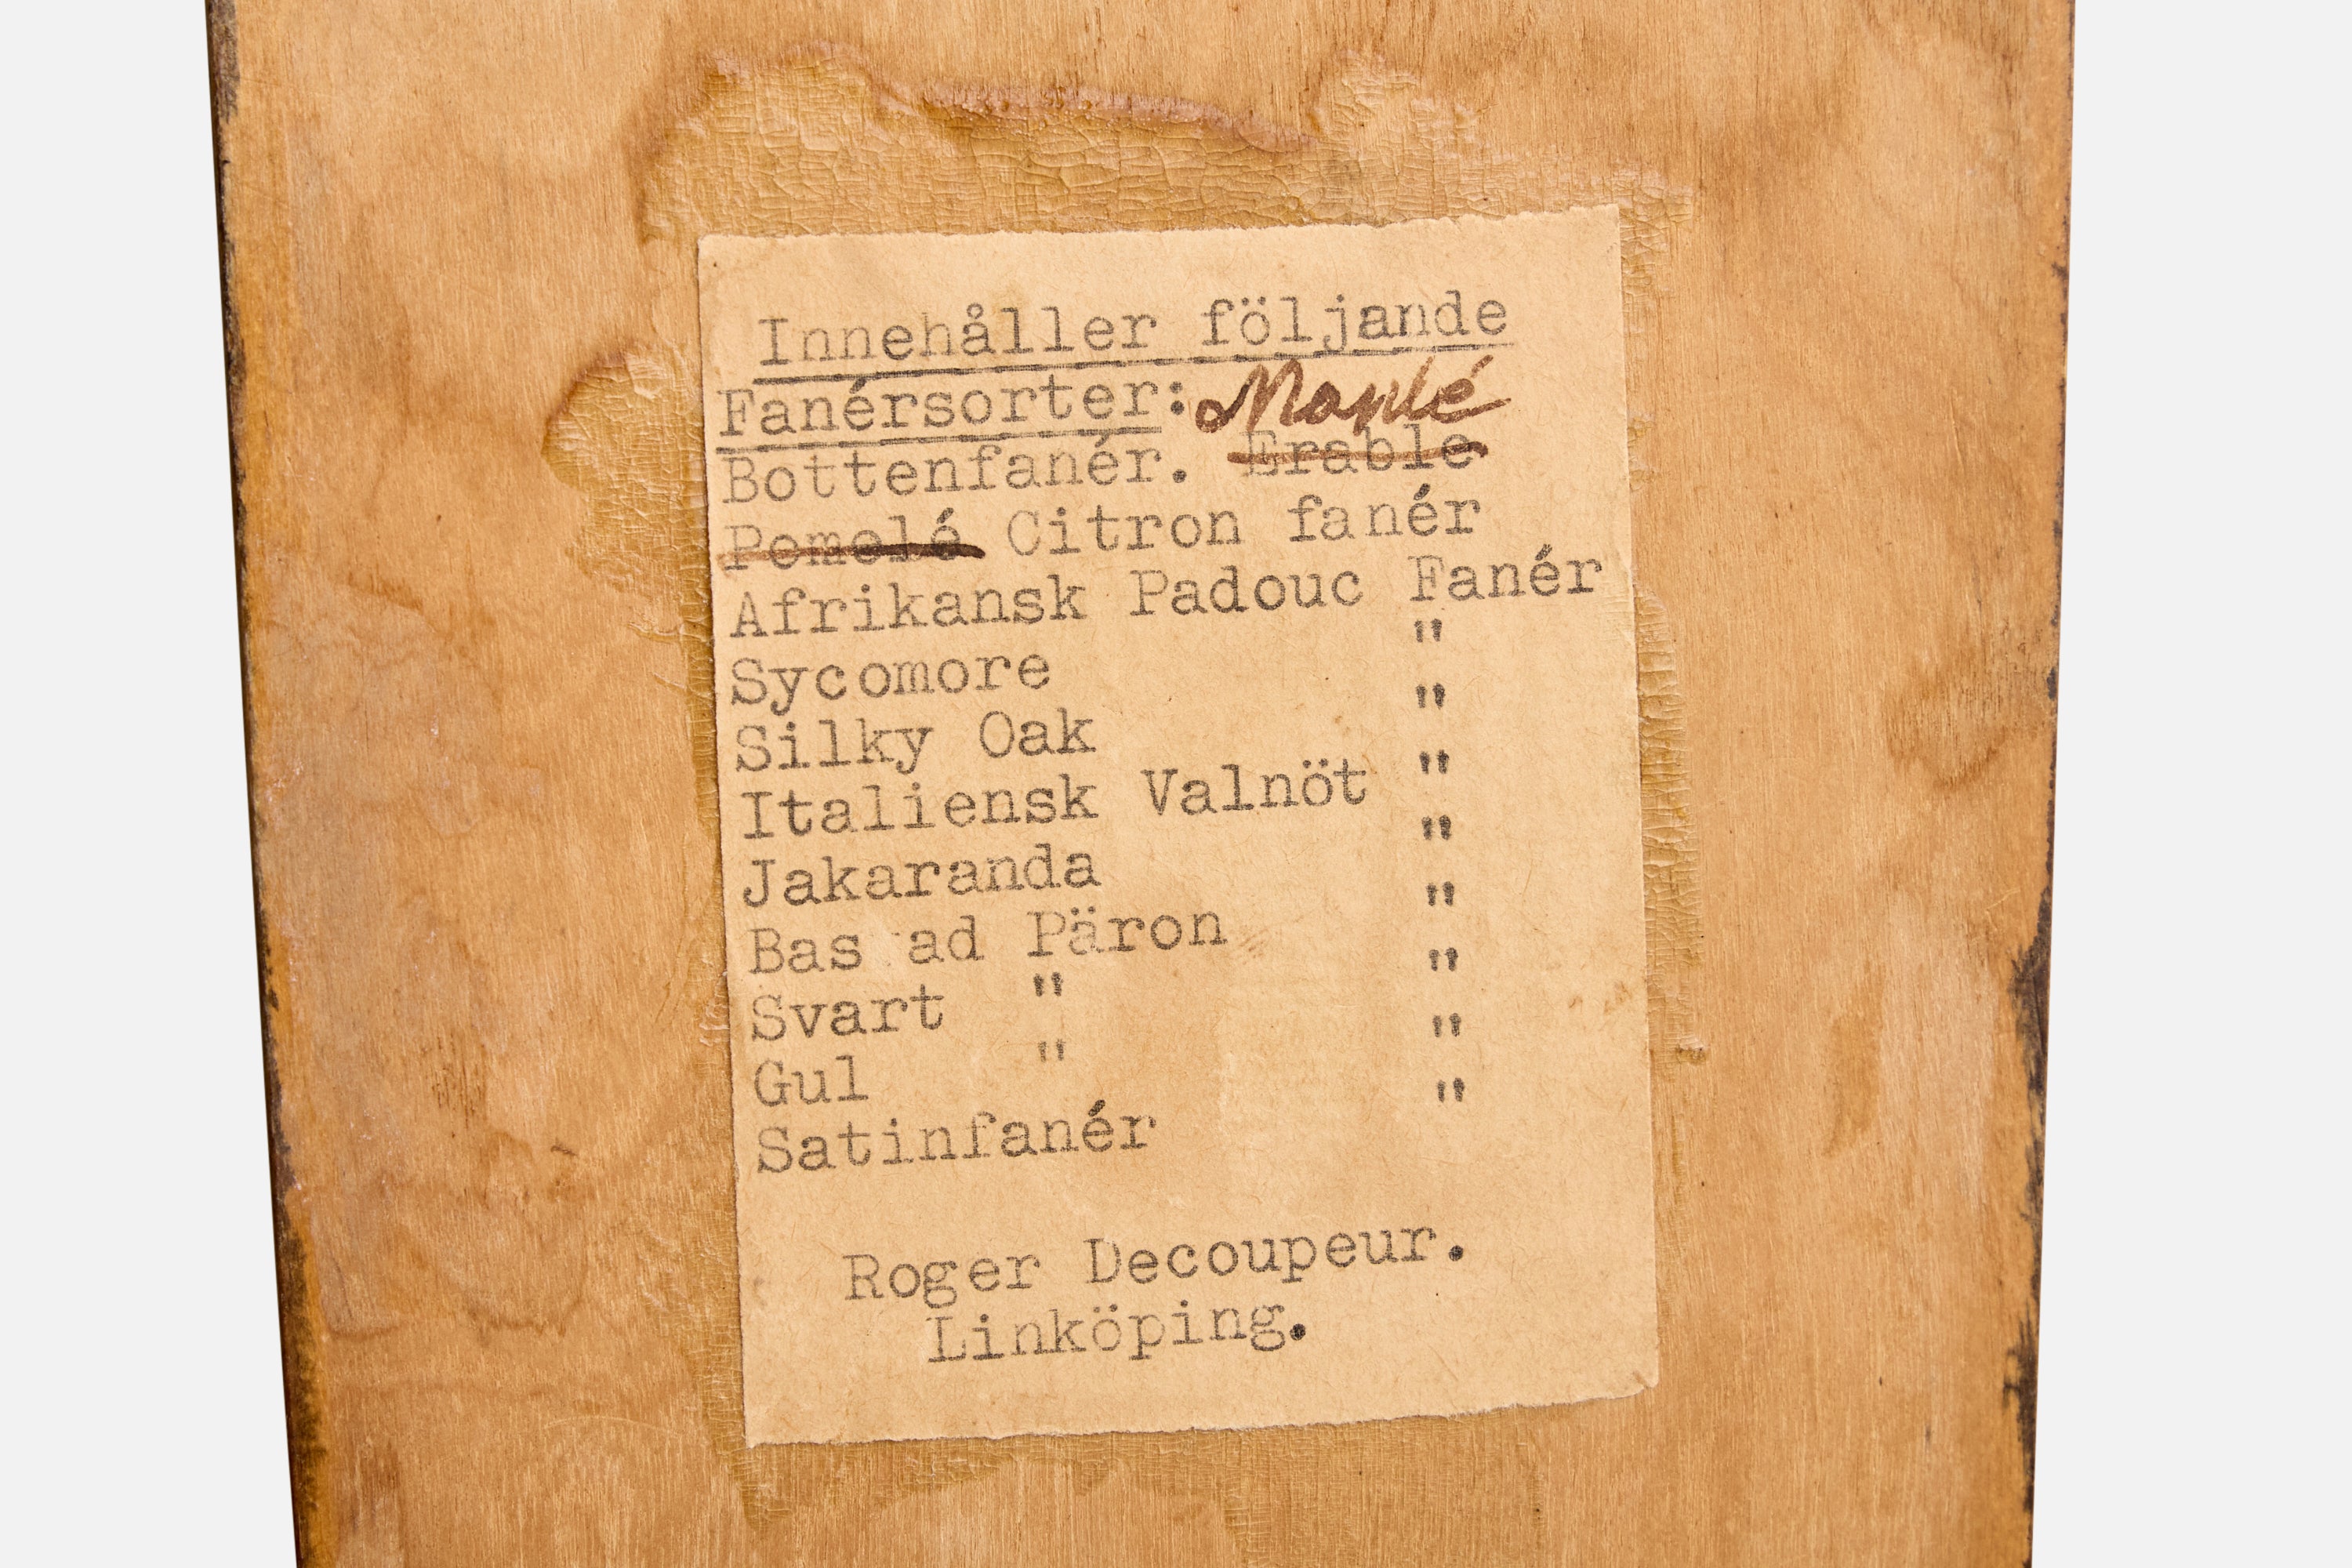 Innehåller följande
Fanérsorter:
Bottenfanér. Erable
Pomelé Citron fanér
Afrikansk Padouc Fanér
Sycomore "
Silky Oak "
Italiensk Valnöt "
Jakaranda "
Bas ad Päron "
Svart " "
Gul " "
Satinfanér "
Roger Decoupeur.
Linköping.